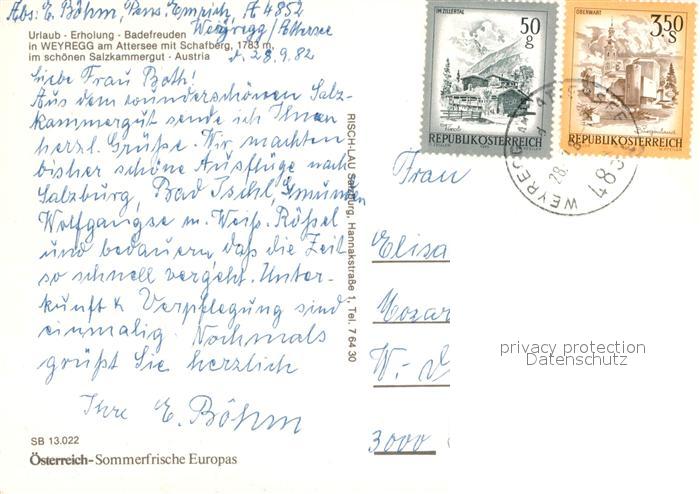 Abs: E. Böhm, Pens. Emrich, A 4852
Weyregg/Attersee
d. 28.9.82
Urlaub - Erholung - Badefreuden
in WEYREGG am Attersee mit Schafberg, 1783 m,
im schönen Salzkammergut - Austria
Liebe Frau Both!
Aus dem wunderschönen Salz-
kammergut sende ich Ihnen
herzl. Grüße. Wir machten
bisher schöne Ausflüge nach
Salzburg, Bad Ischl, Gmunden
Wolfgangsee m. Weiß. Rößel
und bedauern, daß die Zeit
so schnell vergeht. Unter-
kunft & Verpflegung sind
einmalig. Nochmals
grüßt Sie herzlich
Ihre E. Böhm
SB 13.022
Österreich-Sommerfrische Europas
RISCH-LAU Salzburg, Hannakstraße 1, Tel. 7 64 30
IM ZILLERTAL
50
g
Tirol
REPUBLIK ÖSTERREICH
OBERWART
3.50
S
Burgenland
REPUBLIK ÖSTERREICH
WEYREGG
28.
Frau
Elisa
Mozar
W.-
3000
privacy protection
Datenschutz